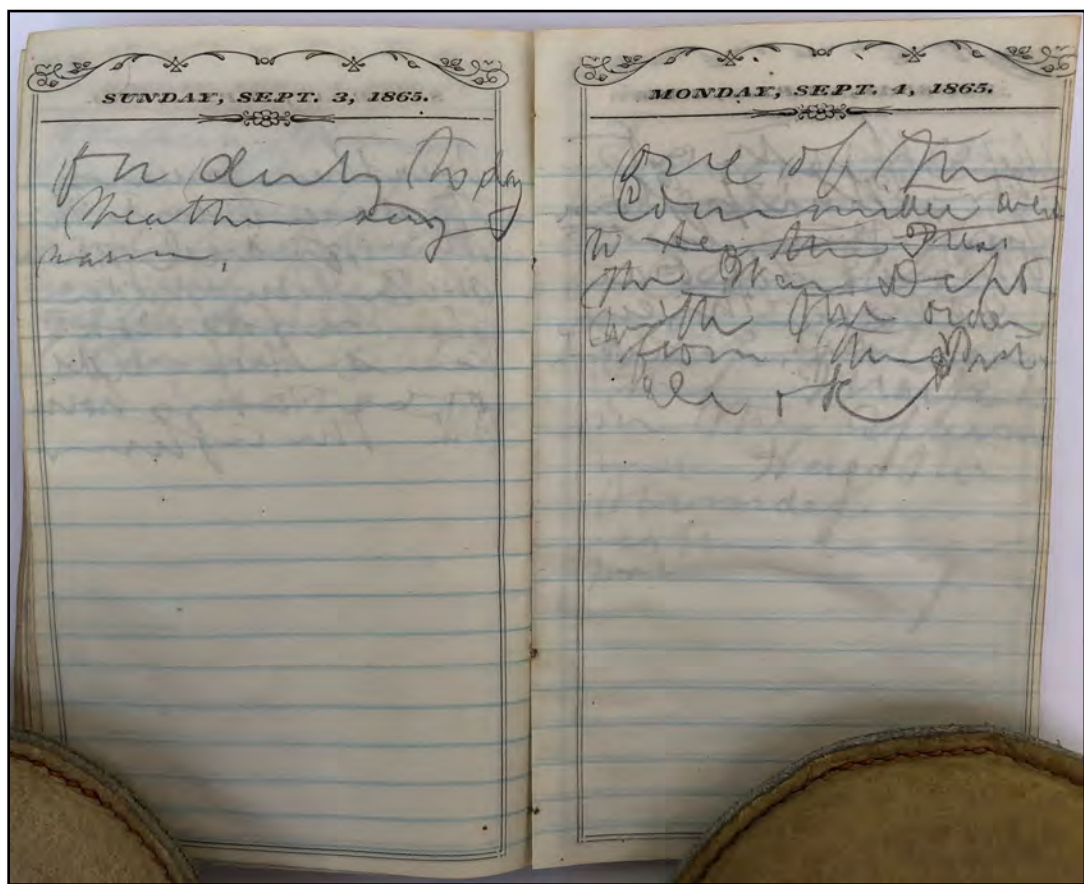 SUNDAY, SEPT. 3, 1865.
On duty to day
Weather very
warm.
MONDAY, SEPT. 4, 1865.
one of the
Committee went
to see the Pres
the War Dept
with the order
from the Pres
all ok